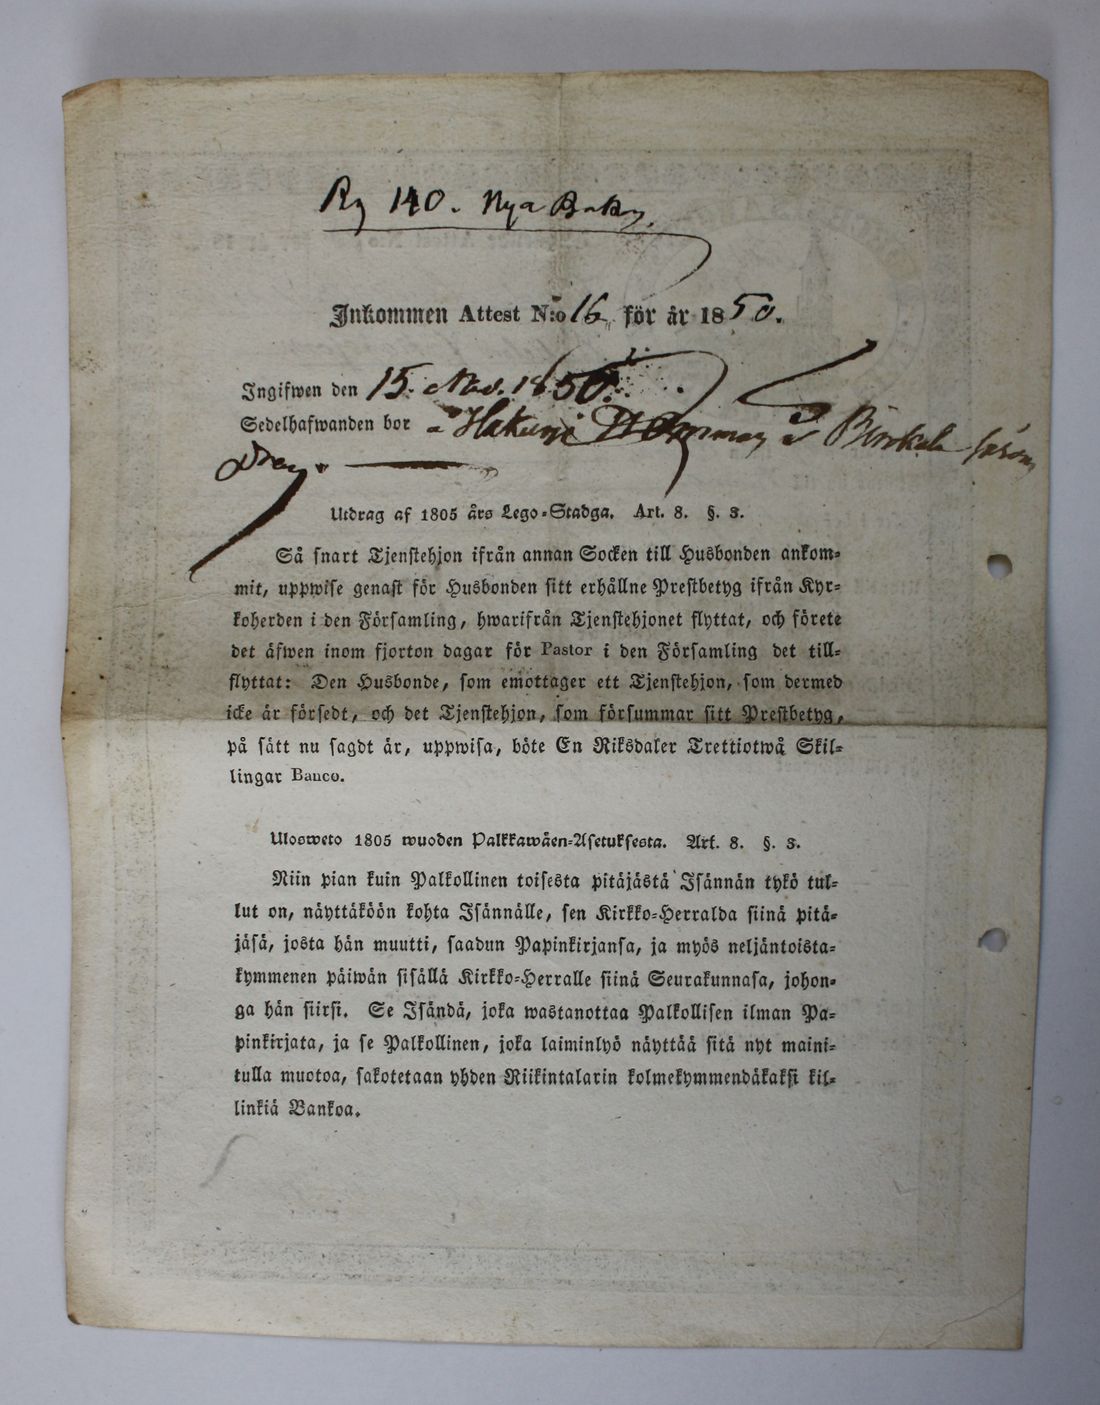 140. Nya
Inkommen Attest N:o 16 för år 1850.
Ingifwen den 15. Nov. 1850.
Sedelhafwanden bor
Utdrag af 1805 års Lego-Stadga. Art. 8. §. 3.
Så snart Tjenstehjon ifrån annan Socken till Husbonden ankom-
mit, uppwise genast för Husbonden sitt erhållne Prestbetyg ifrån Kyr-
koherden i den Församling, hwarifrån Tjenstehjonet flyttat, och förete
det äfwen inom fjorton dagar för Pastor i den Församling det till-
flyttat: Den Husbonde, som emottager ett Tjenstehjon, som dermed
icke är försedt, och det Tjenstehjon, som försummar sitt Prestbetyg,
på sätt nu sagdt är, uppwisa, böte En Riksdaler Trettiotwå Skil-
lingar Banco.
Ulosweto 1805 wuoden Palkkawäen-Asetuksesta. Art. 8. §. 3.
Niin pian kuin Palkollinen toisesta pitäjästä Isännän tykö tul-
lut on, näyttäköön kohta Isännälle, sen Kirkko-Herralda siinä pitä-
jäsä, josta hän muutti, saadun Papinkirjansa, ja myös neljäntoista-
kymmenen päiwän sisällä Kirkko-Herralle siinä Seurakunnasa, johon-
ga hän siirsi. Se Isändä, joka wastanottaa Palkollisen ilman Pa-
pinkirjata, ja se Palkollinen, joka laiminlyö näyttää sitä nyt maini-
tulla muotoa, sakotetaan yhden Riikintalarin kolmekymmendäkaksi kil-
linkiä Bankoa.